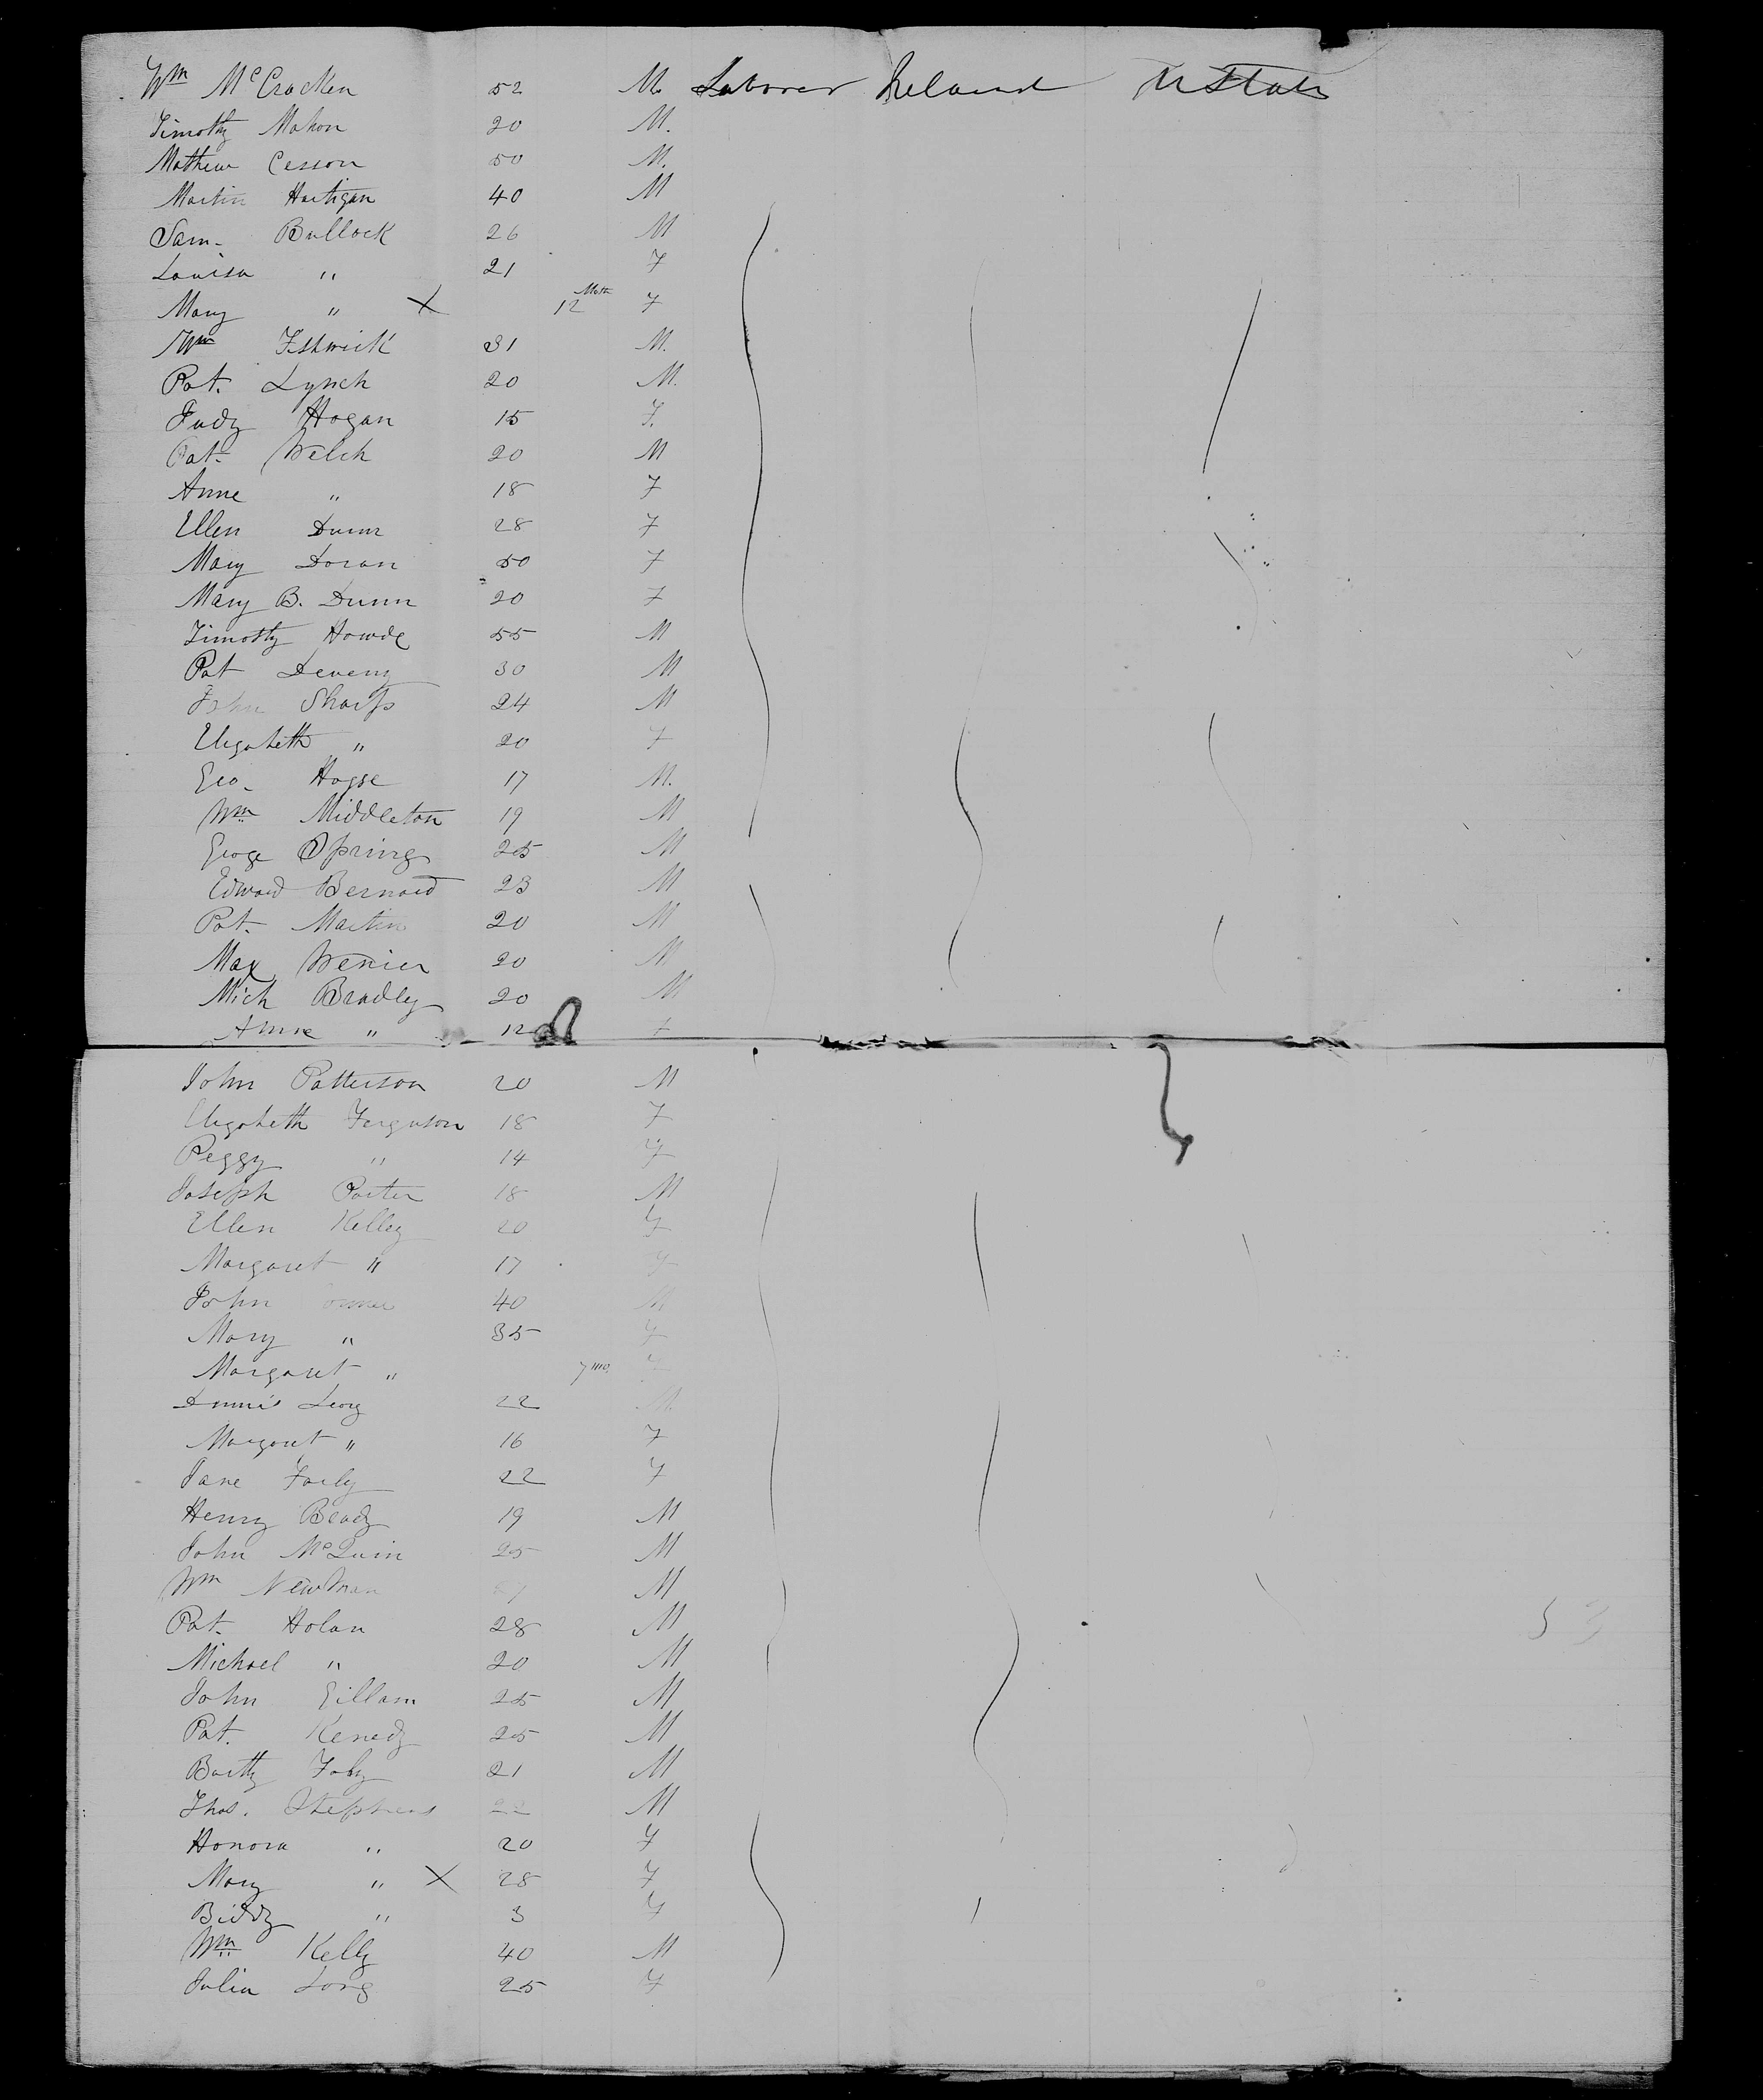 Wm McCracken 52 M Laborer Ireland U States
Timothy Mahon 20 M.
Mathew Cesson 50 M.
Martin Hartigan 40 M
Sam. Bullock 26 M
Louisa " 21 F
Mary " X 12 Mths F
Wm Fishwick 31 M.
Pat. Lynch 20 M.
Judy Hogan 15 F.
Pat. Welch 20 M
Anne " 18 F
Ellen Dunn 28 F
Mary Doran 50 F
Mary B. Dunn 20 F
Timothy 55 M
Pat Deveny 30 M
John Sharp 24 M
Elizabeth " 20 F
Geo. 17 M.
Wm Middleton 19 M
George Spring 25 M
Edward Bernard 23 M
Pat. Martin 20 M
Max Wenier 20 M
Mich Bradley 20 M
Anne " 12 F
John Patterson 20 M
Elizabeth Ferguson 18 F
Peggy " 14 F
Joseph Porter 18 M
Ellen Kelley 20 F
Margaret " 17 F
John 40 M
Mary " 35 F
Margaret " 7 mo F
Dennis Leory 22 M.
Margaret " 16 F
Jane Farly 22 F
Henry Brady 19 M
John McQuin 25 M
Wm Newman M
Pat. Holan 28 M
Michael " 20 M
John Gillam 25 M
Pat. Kenedy 25 M
Barthy 21 M
Thos. Stephens 22 M
Honora " 20 F
Mary " X 28 F
Biddy " 3 F
Wm Kelly 40 M
Julia Long 25 F